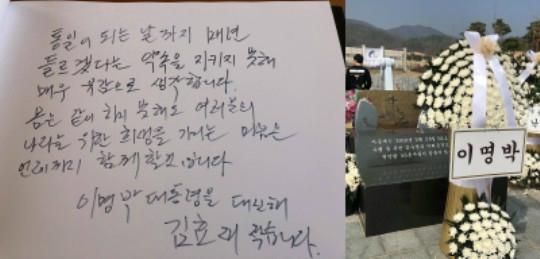 통일이 되는 날까지 매년
들르겠다는 약속을 지키지 못해
매우 유감으로 생각합니다.
몸은 같이 하지 못해도 여러분의
나라를 위한 희생을 기리는 마음은
언제까지 함께 할 것입니다
이명박 대통령을 대신해
김효재 적습니다.
이명박